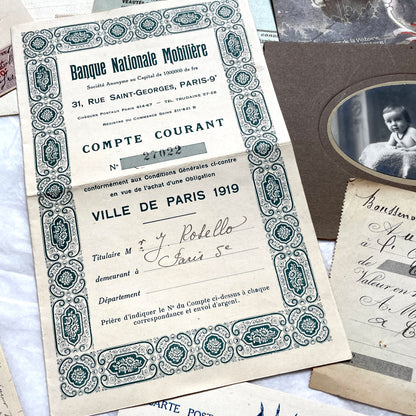 Banque Nationale Mobilière
Société Anonyme au Capital de 1000000 de frs
31, RUE SAINT-GEORGES, PARIS-9e
CHÈQUES POSTAUX PARIS 414-67 - TÉL. TRUDAINE 57-28
REGISTRE DU COMMERCE SEINE 211-831 B
COMPTE COURANT
No 27022
conformément aux Conditions Générales ci-contre
en vue de l'achat d'une Obligation
VILLE DE PARIS 1919
Titulaire Mr Y. Robello
demeurant à Paris 5e
Département
Prière d'indiquer le No du Compte ci-dessus à chaque
correspondance et envoi d'argent.
Valeur en